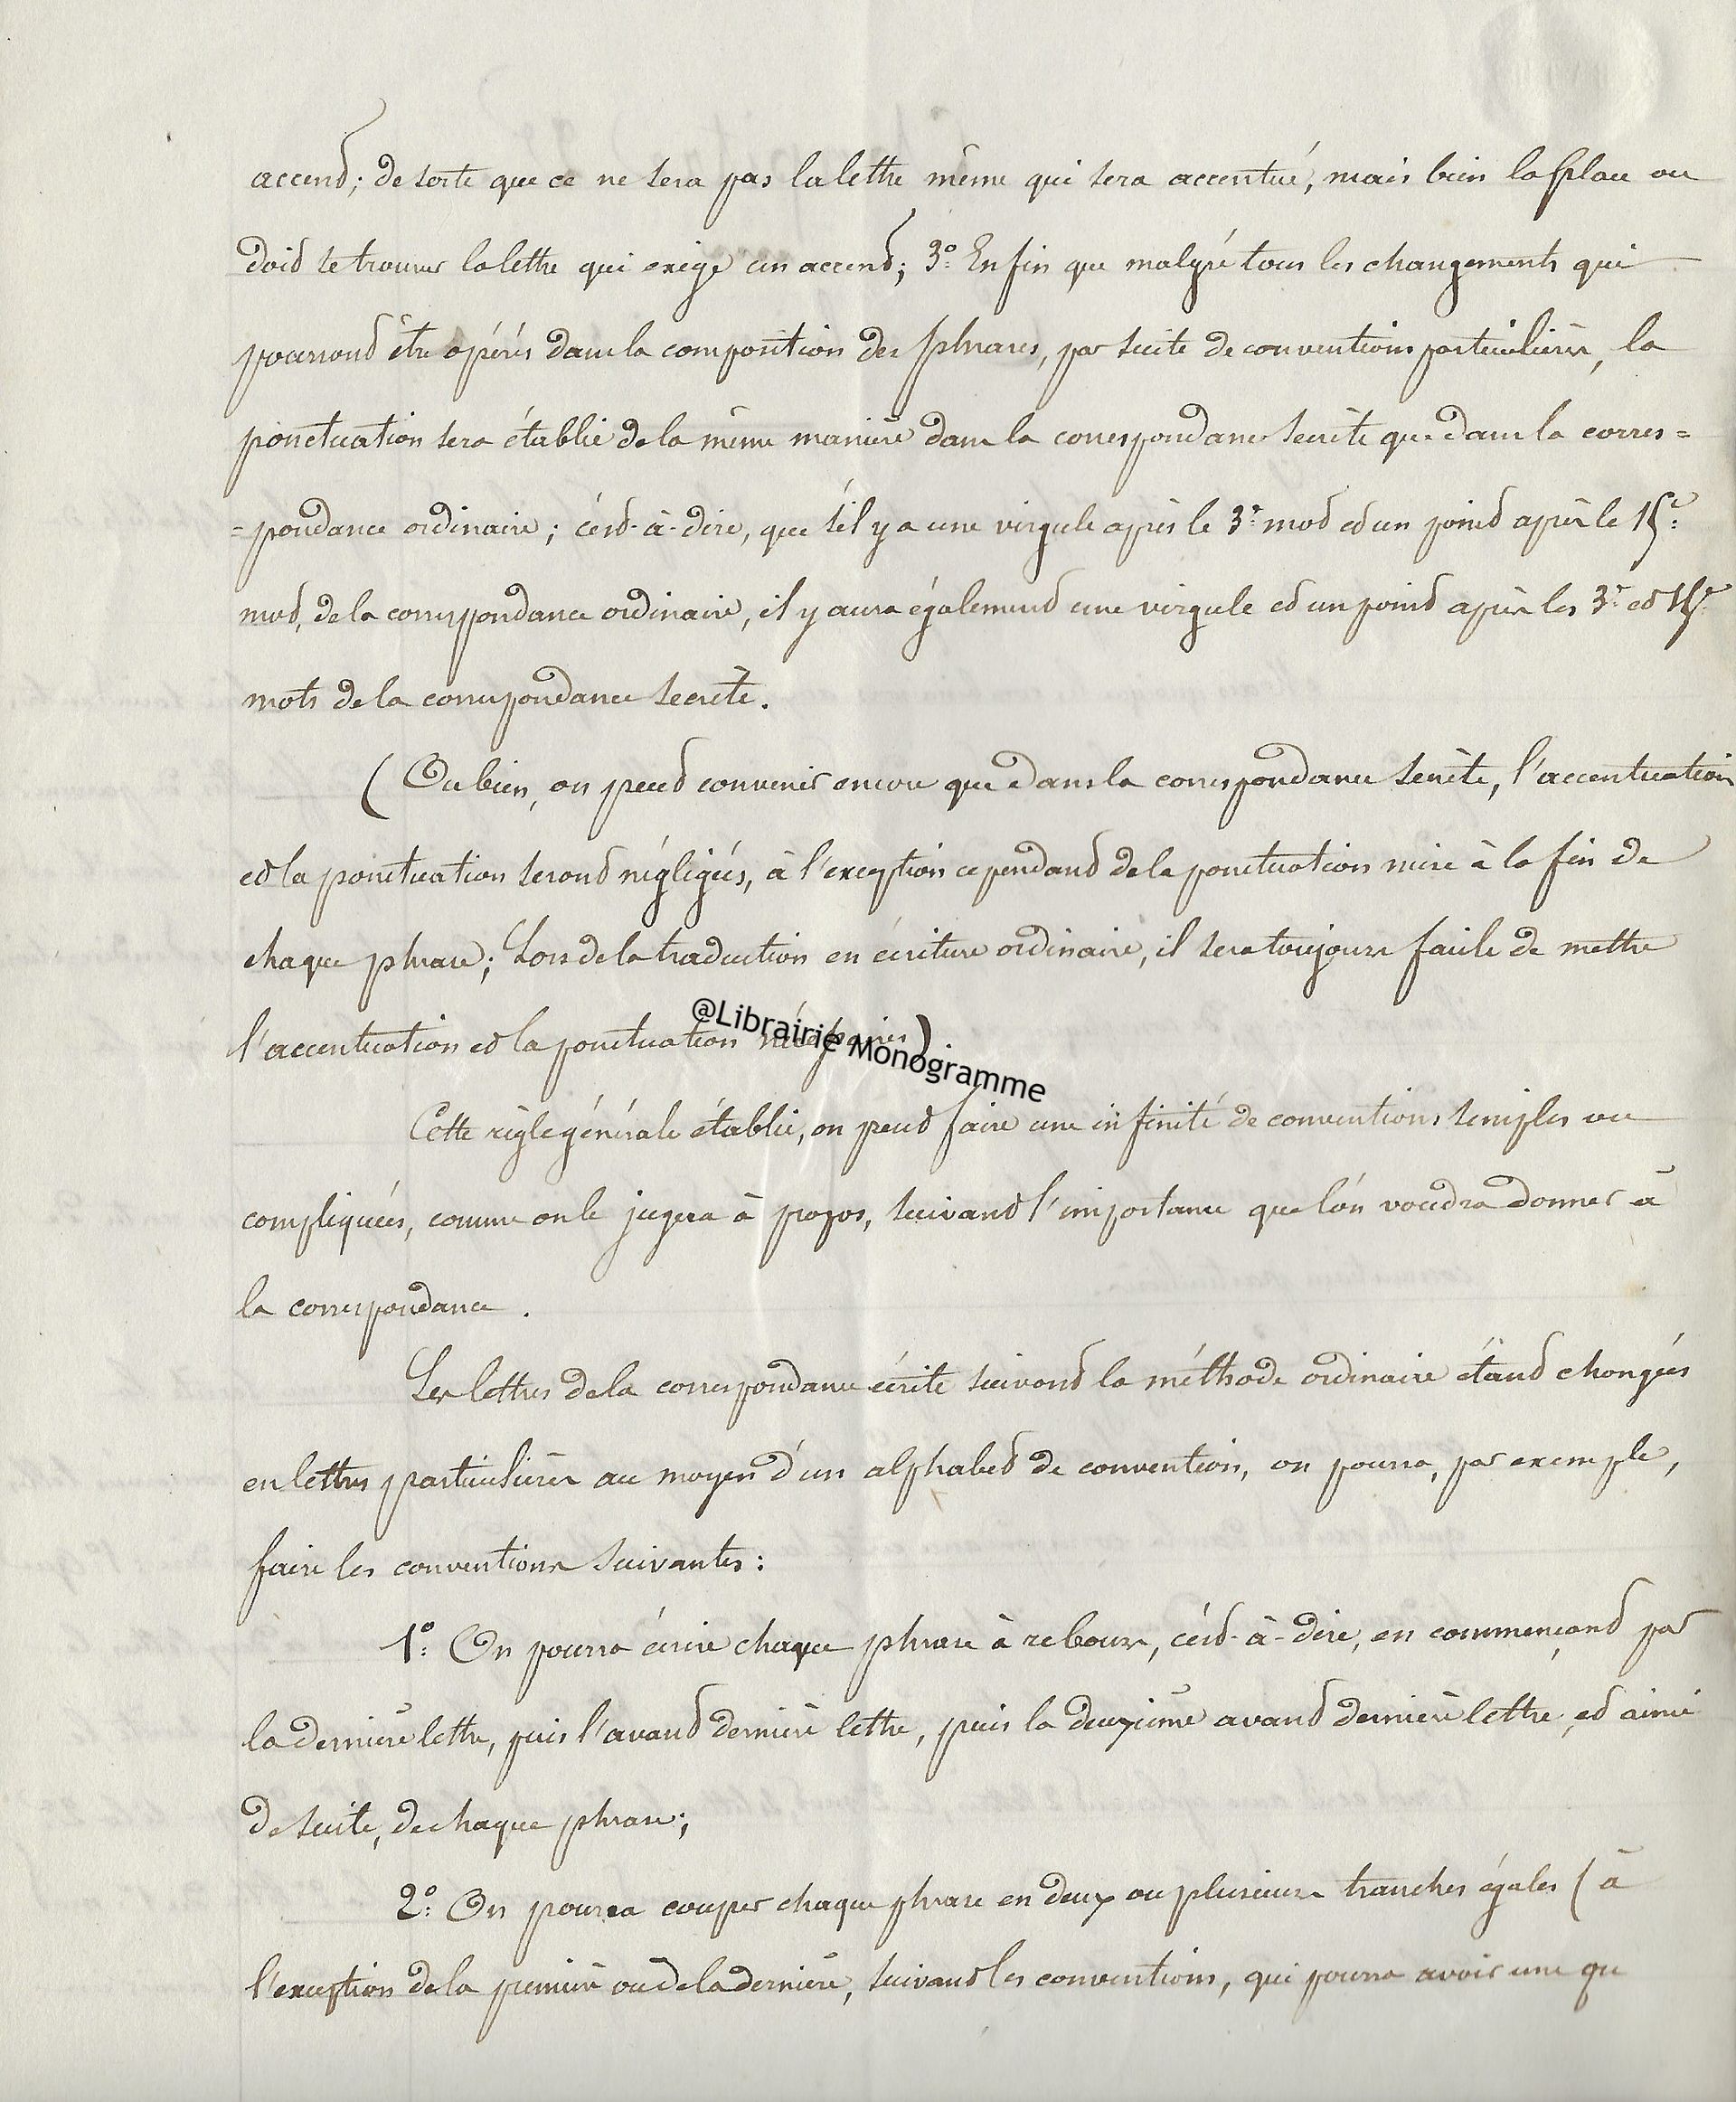 accent; de sorte que ce ne sera pas la lettre même qui sera accentué, mais bien la place ou
doit se trouver la lettre qui exige un accent; 3.º Enfin que malgré tous les changements qui
pourront être opérés dans la composition des phrases, par suite de conventions particulières, la
ponctuation sera établie de la même manière dans la correspondance secrète que dans la corres=
=pondance ordinaire; c'est-à-dire, que s'il y a une virgule après le 3.e mot et un point après le 15.e
mot, de la correspondance ordinaire, il y aura également une virgule et un point après les 3.e et 15.e
mots de la correspondance secrète.
(Ou bien, on peut convenir encore que dans la correspondance secrète, l'accentuation
et la ponctuation seront négligées, à l'exception cependant de la ponctuation mise à la fin de
chaque phrase; Lors de la traduction en écriture ordinaire, il sera toujours facile de mettre
l'accentuation et la ponctuation )
@Librairie Monogramme
Cette règle générale établie, on peut faire une infinité de conventions simples ou
compliquées, comme on le jugera à propos, suivant l'importance que l'on voudra donner à
la correspondance.
Les lettres de la correspondance écrite suivant la méthode ordinaire étant changées
en lettres particulières au moyen d'un alphabet de convention, on pourra, par exemple,
faire les conventions suivantes:
1.º On pourra écrire chaque phrase à rebours, c'est-à-dire, en commençant par
la dernière lettre, puis l'avant dernière lettre, puis la deuxième avant dernière lettre, et ainsi
de suite, de chaque phrase;
2.º On pourra couper chaque phrase en deux ou plusieurs tranches égales (à
l'exception de la première ou de la dernière, suivant les conventions, qui pourra avoir une qu